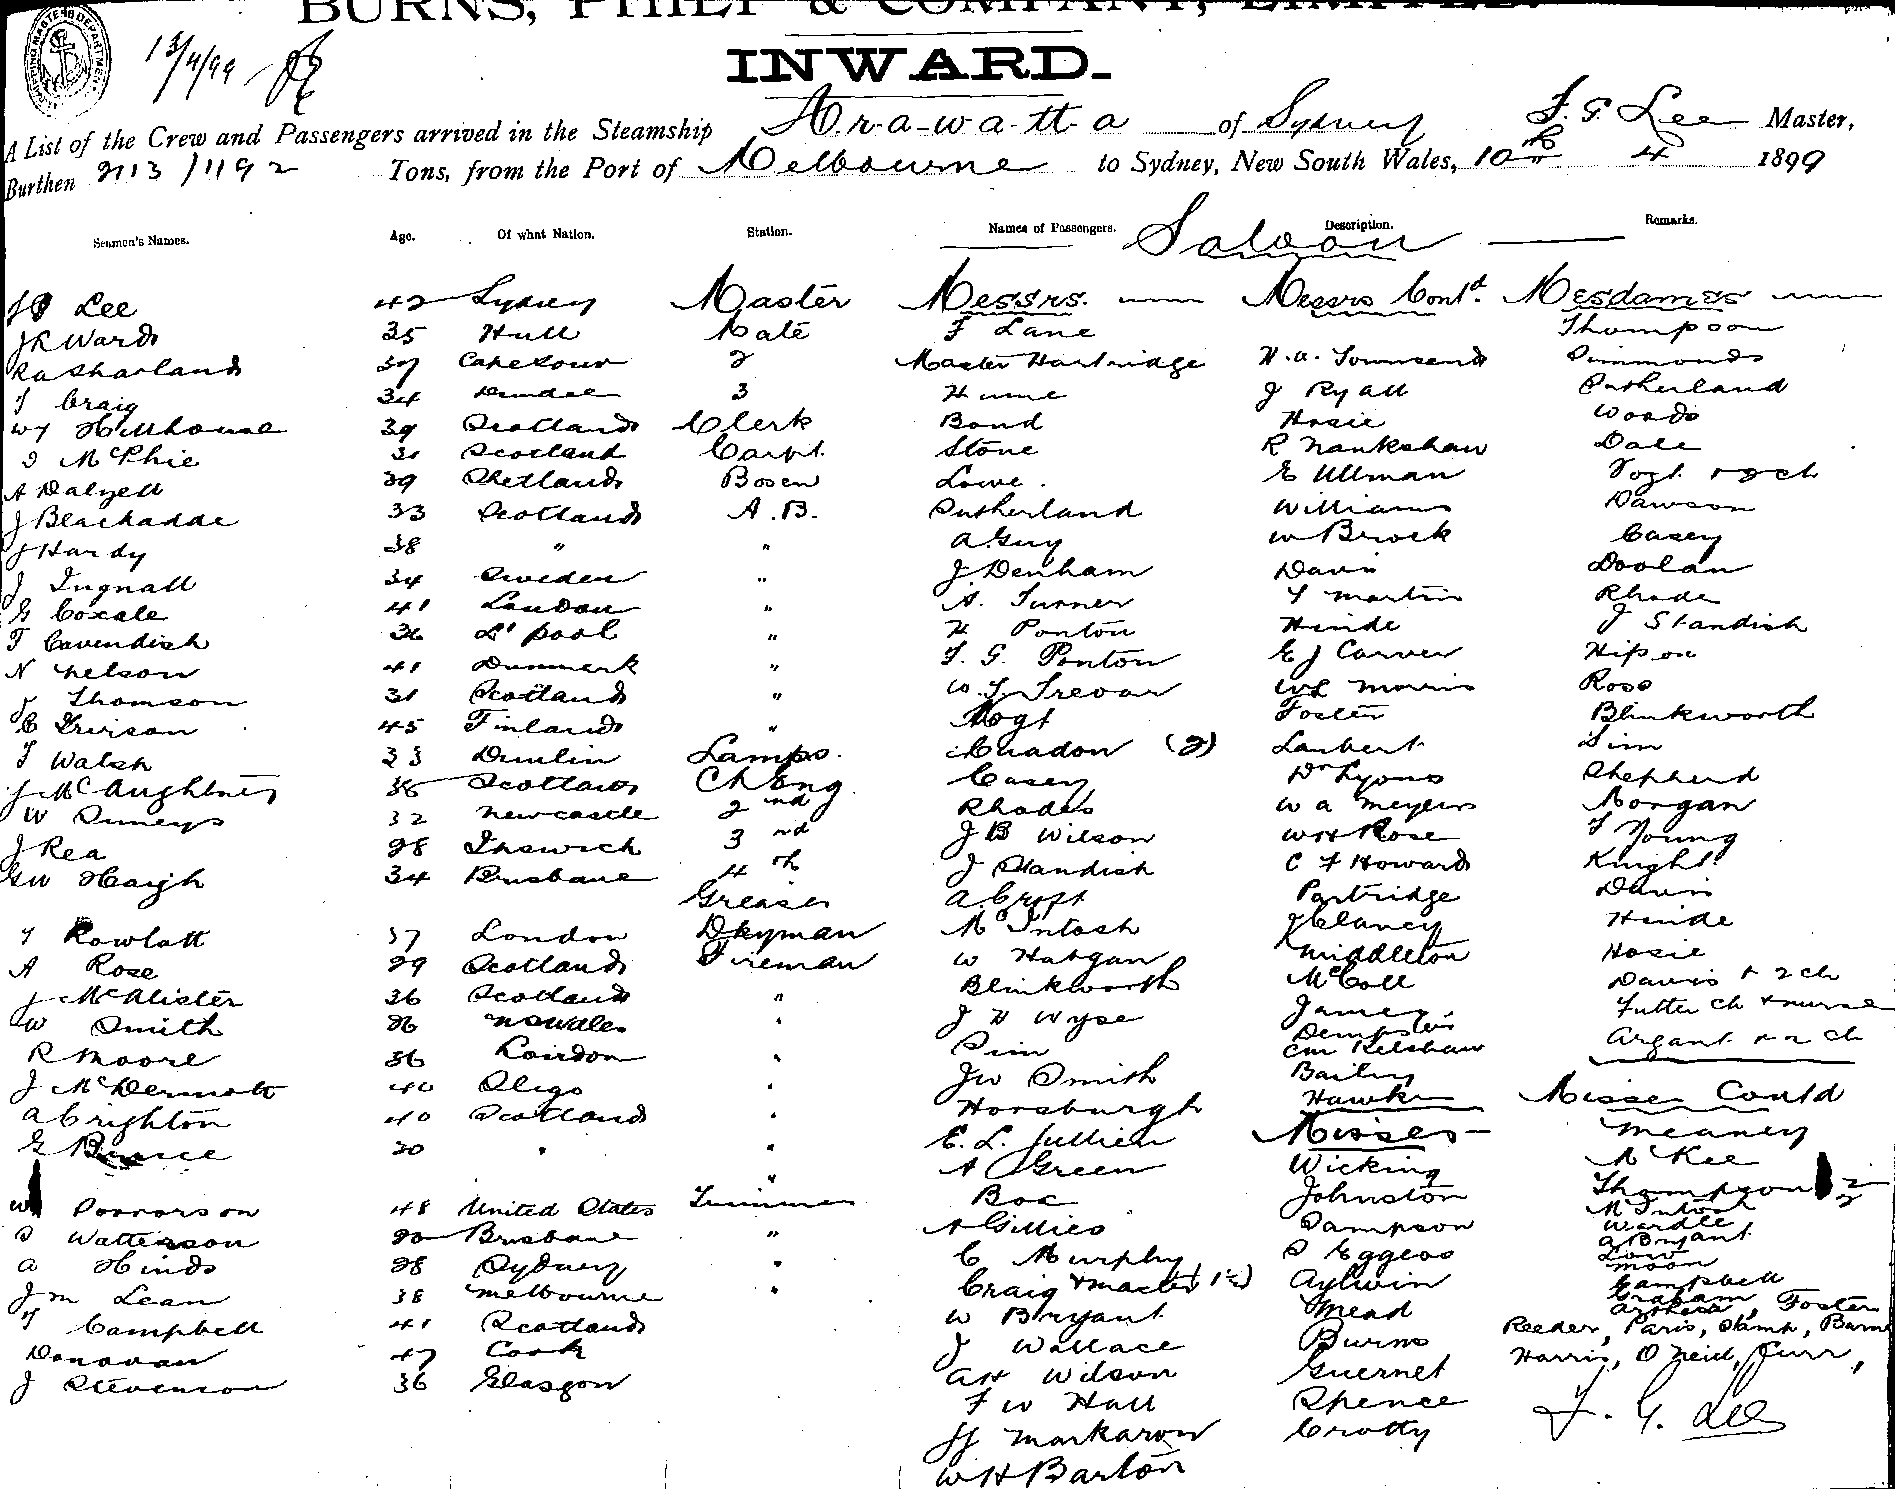 BURNS, PHILP & COMPANY, LIMITED.
INWARD.
13/4/99
A List of the Crew and Passengers arrived in the Steamship Arawatta of Sydney F. G. Lee Master,
Burthen 2113/1192 Tons, from the Port of Melbourne to Sydney, New South Wales, 10th 4 1899
Seamen's Names. Age. Of what Nation. Station. Names of Passengers. Description. Remarks.
Saloon
Lee 42 Sydney Master Messrs. Messrs Contd. Mesdames
J R Ward 35 Hull Mate F Lane Thompson
R A Sharland 37 Capetown 2 Master Hartridge H. A. Townsend Simmonds
T Craig 34 Dundee 3 Hume J Ryall Sutherland
W J Hillhouse 39 Scotland Clerk Bond Hosie Woods
D McPhie 31 Scotland Carpt. Stone R Nankshaw Dale
A Dalzell 29 Shetland Bosen Lowe E Ullman Vogt + 2 ch
J Blackadde 33 Scotland A.B. Sutherland Williams Dawson
J Hardy 38 " " A. Guy W Brock Casey
J Ingnall 34 Sweden " J. Denham Davis Doolan
G Coxale 41 London " A. Turner T Martin Rhodes
T Cavendish 36 L'pool " H Ponton Hinde J Standish
N Nelson 41 Denmark " T. G. Ponton E J Carver Hipson
J Thomson 31 Scotland " W. J. Trevar W L Morris Ross
C Iverson 45 Finland " Vogt Foster Blinkworth
T Walsh 23 Dublin Lamps. (2) Lambert Sim
J McAughtrie 38 Scotland Ch Eng. Casey Dr Lyons Shepherd
W 32 Newcastle 2nd Rhodes W A Meyers Morgan
J Rea 28 Ipswich 3rd J B Wilson W H Rose T Young
G W Haigh 34 Brisbane 4th J Standish C F Howard Knight
Greaser A. Croft Partridge Davis
T Rowlatt 37 London Dkyman McIntosh J Clancy Hinde
A Rose 29 Scotland Fireman W Hatgan Middleton Hosie
J McAlister 36 Scotland " Blinkworth McColl Davis + 2 ch
W Smith 26 N S Wales " J H Wyse James Tutter ch + nurse
R Moore 36 London " Sim Dempster Argent + 2 ch
C M Kelshaw
J McDermott 40 Sligo " J W Smith Bailey Misses Contd
A Crighton 40 Scotland " Horsburgh Hawke Meaney
G Bruce 30 " " E. L. Jullien Misses McKee
" A Green Wicking Thompson 2
W 48 United States Trimmer Box Johnston McIntosh
D Watterson 20 Brisbane " A Gillies Sampson Wardle
A Bryant
A Hinds 28 Sydney " C Murphy S Eggers Low
Moon
J M Lean 38 Melbourne " Craig + master Aylwin Campbell
Graham
T Campbell 41 Scotland W Bryant Mead Foster
Donovan 47 Cork J Wallace Burns Reeder, Paris, Stamp,
J Stevenson 36 Glasgow A H Wilson Guernet Harris, O'Neill, Furr,
F W Hall Spence F. G. Lee
Markarow Crotty
W H Barton